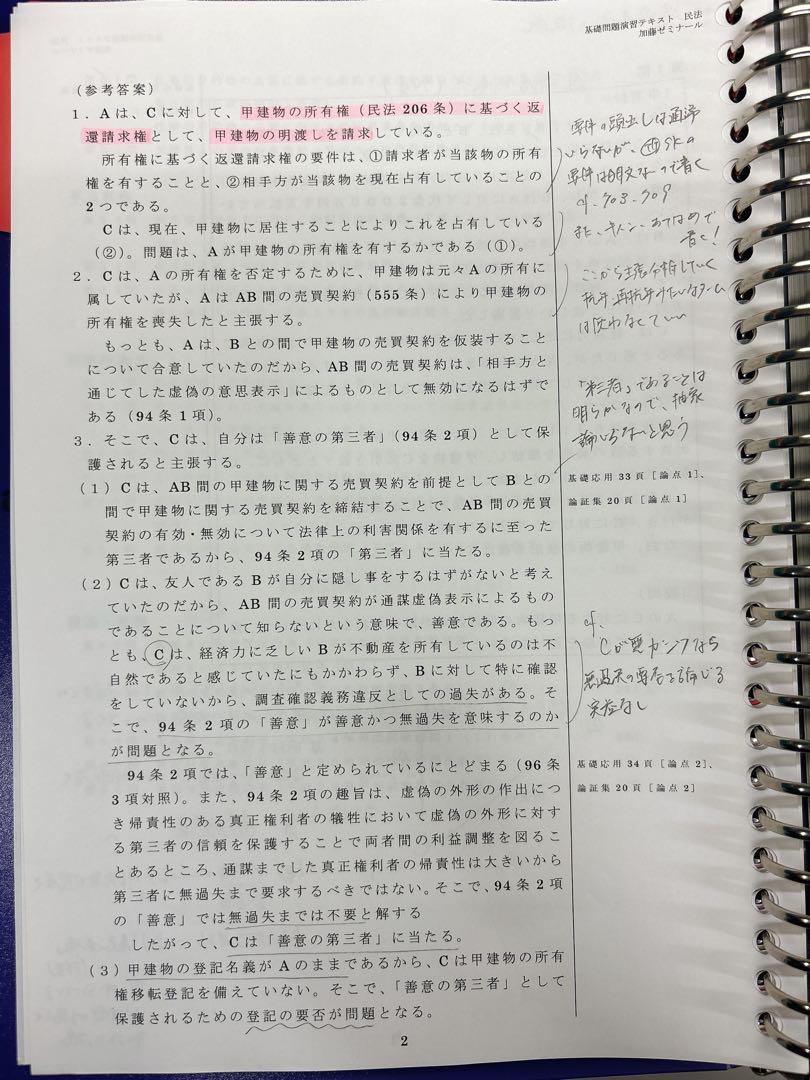 基礎問題演習テキスト 民法
加藤ゼミナール
（参考答案）
１．Ａは、Ｃに対して、甲建物の所有権（民法 206 条）に基づく返
還請求権として、甲建物の明渡しを請求している。
所有権に基づく返還請求権の要件は、①請求者が当該物の所有
権を有することと、②相手方が当該物を現在占有していることの
２つである。
Ｃは、現在、甲建物に居住することによりこれを占有している
（②）。問題は、Ａが甲建物の所有権を有するかである（①）。
２．Ｃは、Ａの所有権を否定するために、甲建物は元々Ａの所有に
属していたが、ＡはＡＢ間の売買契約（555 条）により甲建物の
所有権を喪失したと主張する。
もっとも、Ａは、Ｂとの間で甲建物の売買契約を仮装すること
について合意していたのだから、ＡＢ間の売買契約は、「相手方と
通じてした虚偽の意思表示」によるものとして無効になるはずで
ある（94 条１項）。
３．そこで、Ｃは、自分は「善意の第三者」（94 条２項）として保
護されると主張する。
（１）Ｃは、ＡＢ間の甲建物に関する売買契約を前提としてＢとの
間で甲建物に関する売買契約を締結することで、ＡＢ間の売買
契約の有効・無効について法律上の利害関係を有するに至った
第三者であるから、94 条２項の「第三者」に当たる。
（２）Ｃは、友人であるＢが自分に隠し事をするはずがないと考え
ていたのだから、ＡＢ間の売買契約が通謀虚偽表示によるもの
であることについて知らないという意味で、善意である。もっ
とも、Ｃは、経済力に乏しいＢが不動産を所有しているのは不
自然であると感じていたにもかかわらず、Ｂに対して特に確認
をしていないから、調査確認義務違反としての過失がある。そ
こで、94 条２項の「善意」が善意かつ無過失を意味するのか
が問題となる。
94 条２項では、「善意」と定められているにとどまる（96 条
３項対照）。また、94 条２項の趣旨は、虚偽の外形の作出につ
き帰責性のある真正権利者の犠牲において虚偽の外形に対す
る第三者の信頼を保護することで両者間の利益調整を図るこ
とあるところ、通謀までした真正権利者の帰責性は大きいから
第三者に無過失まで要求するべきではない。そこで、94 条２項
の「善意」では無過失までは不要と解する
したがって、Ｃは「善意の第三者」に当たる。
（３）甲建物の登記名義がＡのままであるから、Ｃは甲建物の所有
権移転登記を備えていない。そこで、「善意の第三者」として
保護されるための登記の要否が問題となる。
2
要件の頭出しは通常
いらないが、
要件は明文ないので書く
cf. 703. 709
書く！
ここから主張分析していく
抗弁、再抗弁みたいなターム
は使わなくていい
「第三者」であることは
明らかなので、抽象
論いらないと思う
基礎応用 33 頁［論点 1］、
論証集 20 頁［論点 1］
cf.
Cが悪
無過失の要否を論じる
実益なし
基礎応用 34 頁［論点 2］、
論証集 20 頁［論点 2］